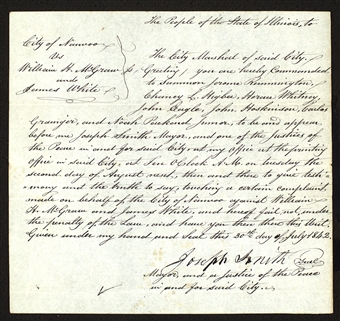 The People of the State of Illinois, to
City of Nauvoo
Vs
William H. McGraw
and
James White
The City Marshal of said City.
Greeting, you are hereby Commanded
to Summon Jerome Kimmington,
Chancy L. Higbe, Horace Whitney,
John Eagle, John Hoskinson, Carlos
Granger, and Noah Packard Junor, to be and appear
before me Joseph Smith Mayor, and one of the justices of
the Peace in and for said City, at my office at the printing
office in said City, at Ten O'Clock A.M. on tuesday the
second day of August next, then and there to give testi-
mony and the truth to say, touching a certain complaint,
made on behalf of the City of Nauvoo against William
H. McGraw and James White, and hereof fail not, under
the penalty of the Law, and have you then there this Writ.
Given under my hand and Seal this 30th day of July 1842.
Joseph Smith Seal
Mayor and a justice of the Peace
in and for said City.